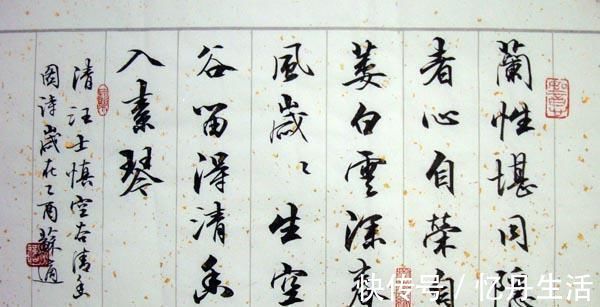 蘭性堪同
者心自榮自
萎白雲深春
風歲々生空
谷留得清香
入素琴
清汪士慎空谷清香
圖詩歲在乙酉蘇適
快传号 / 忆丹生活